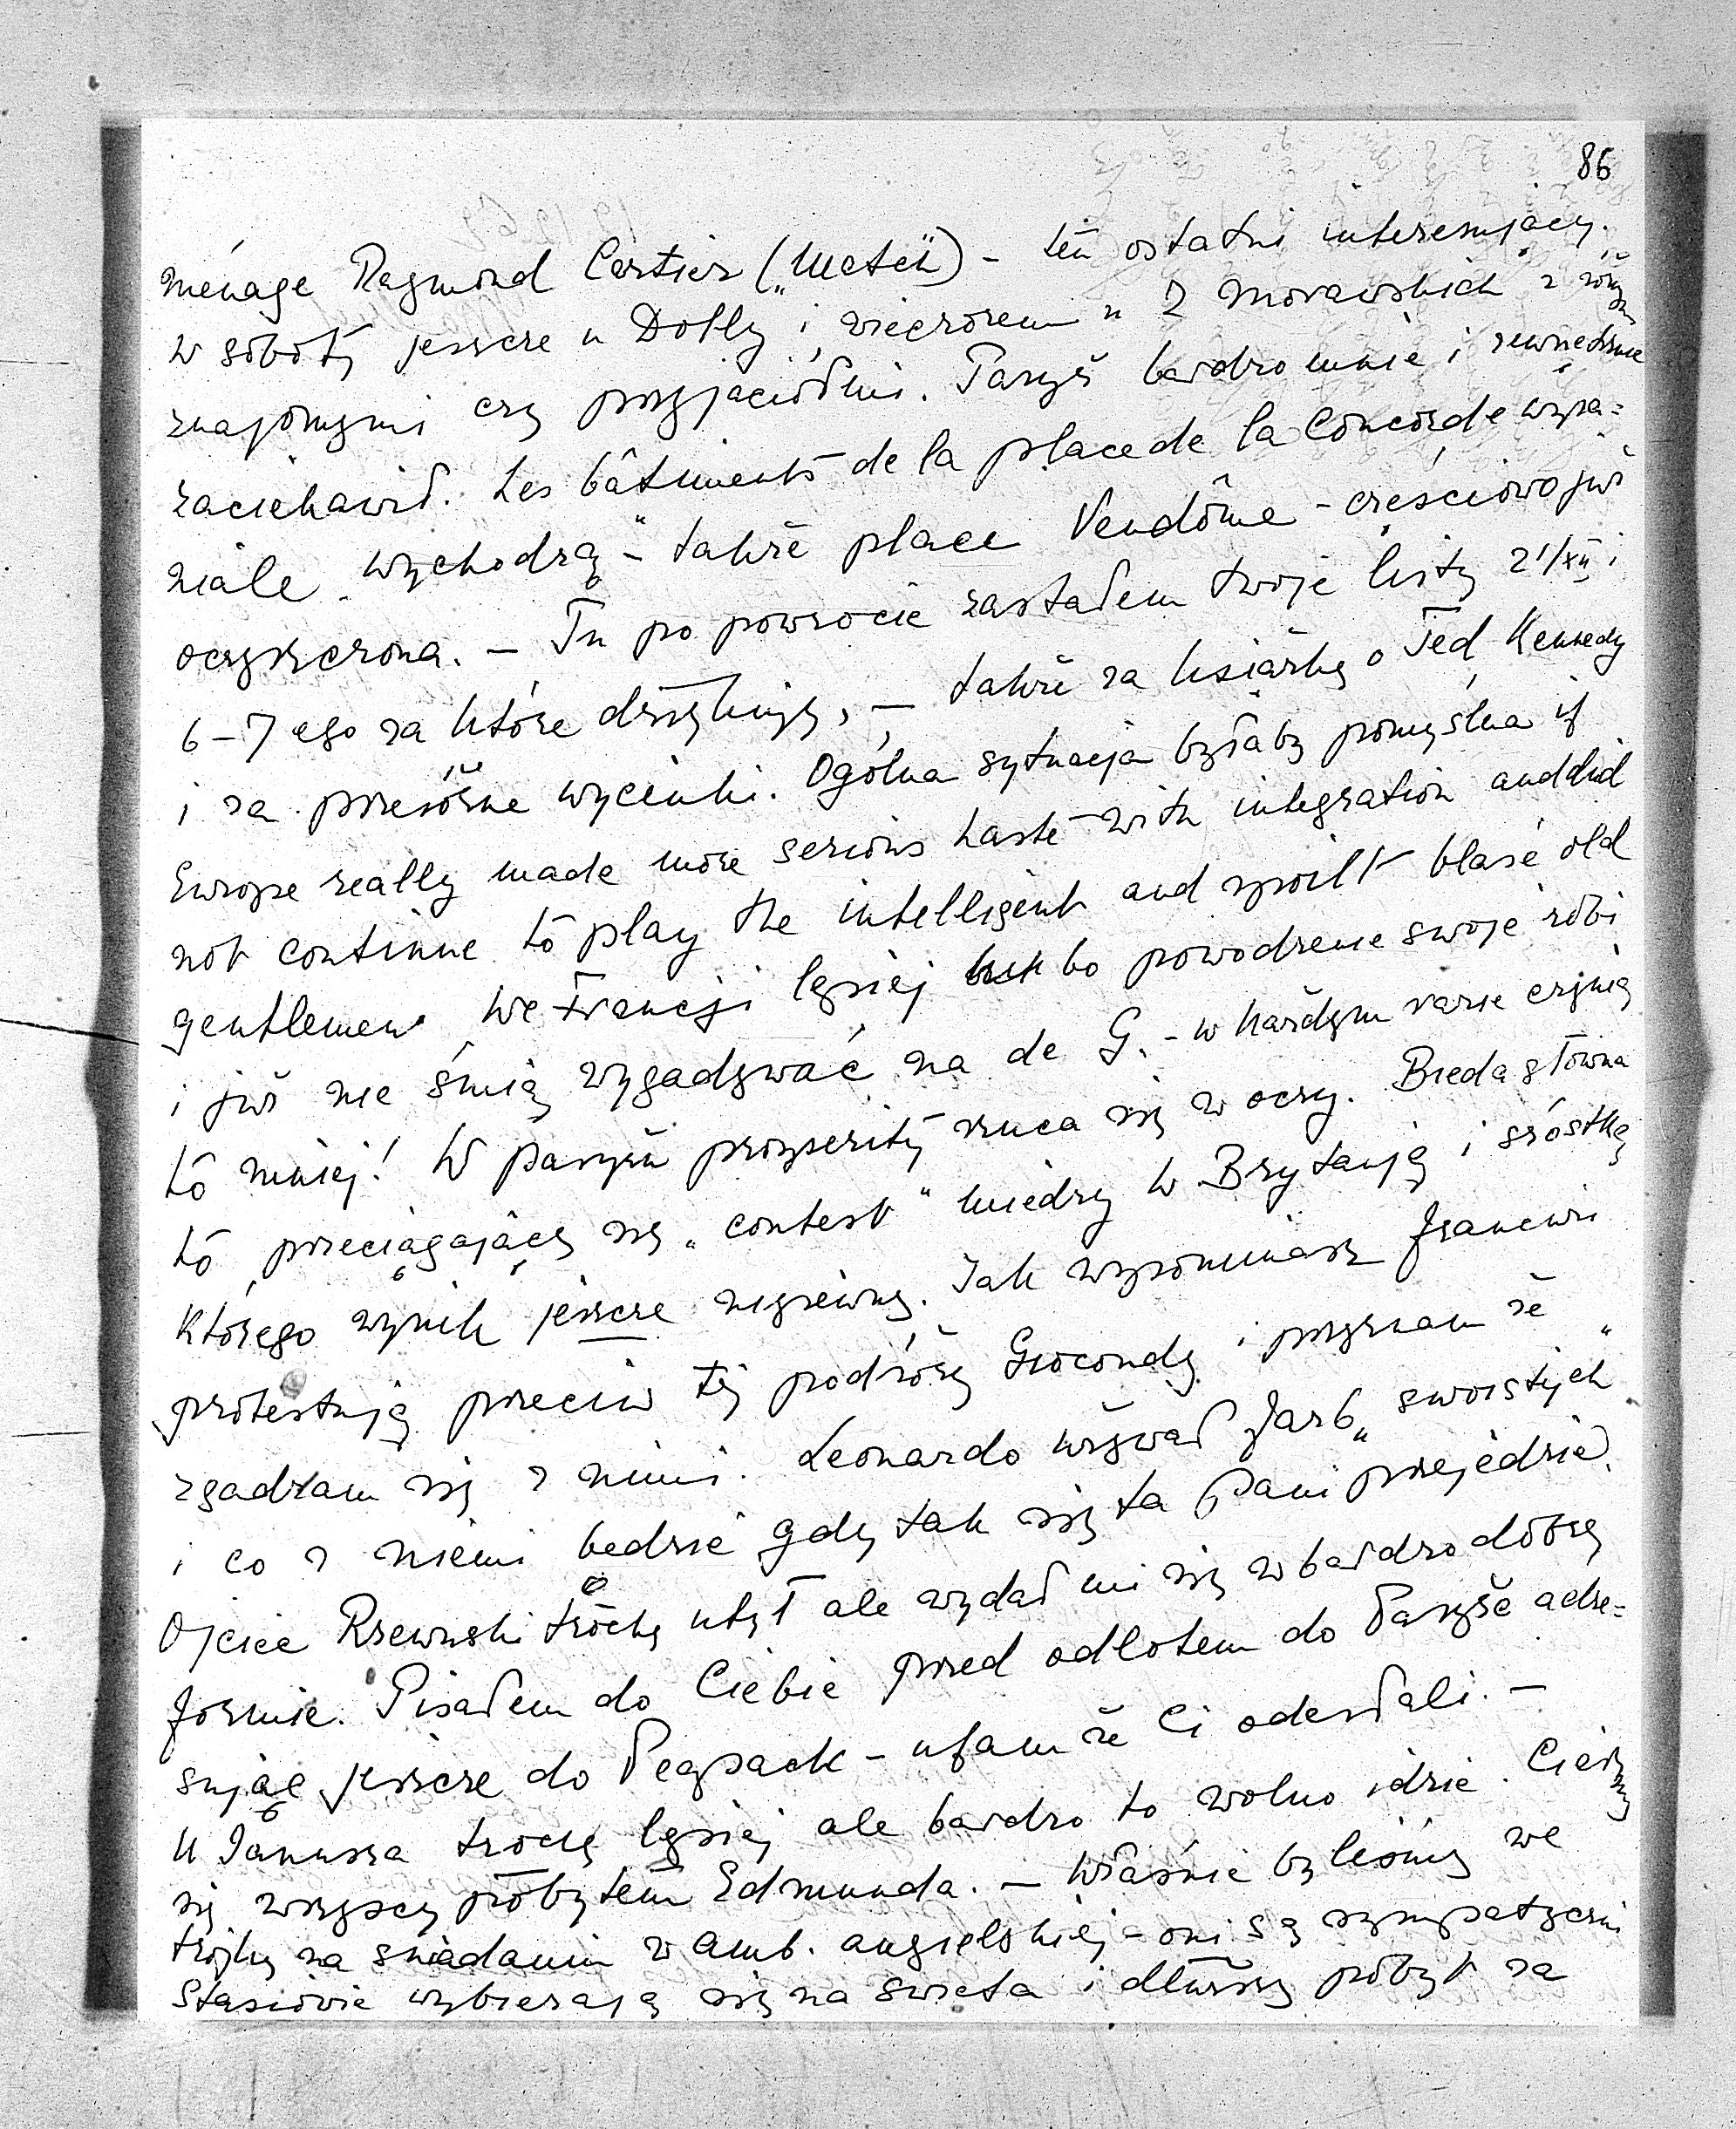 86
ménage Raymond Cartier („Match") – ten ostatni interesujący.
W sobotę jeszcze u Dolly i wieczorem u Z Morawskich z różnymi
znajomymi czy przyjaciółmi. Paryż bardzo mnie i zewnętrznie
zaciekawił. Les bâtiments de la place de la Concorde wspa=
niale „wychodzą" – także place Vendôme – częściowo już
oczyszczona. – Tu po powrocie zastałem twoje listy 21/XII i
6–7ego za które dziękuję, – także za książkę o Ted Kennedy
i za przeróżne wycinki. Ogólna sytuacja byłaby pomyślna if
Europe really made more serious haste with integration and did
not continue to play the intelligent and spoilt blasé old
gentlemen. We Francji lepiej bo powodzenie swoje robi
i już nie śmią wygadywać na de G. – w każdym razie czynią
to mniej! W Paryżu prosperity rzuca się w oczy. Bieda główna
to przeciągający się „contest" między W Brytanją i szóstką
którego wynik jeszcze niepewny. Jak wspominasz francuzi
protestują przeciw tej podróży Giocondy i przyznam że
zgadzam się z nimi. Leonardo używał farb „swoistych"
i co z niemi będzie gdy tak się ta Pani przejedzie.
Ojciec Rzewuski trochę utył ale wydał mi się w bardzo dobrej
formie. Pisałem do Ciebie przed odlotem do Paryża adre=
sując jeszcze do Peapack – ufam że Ci odesłali. –
U Janusza trochę lepiej ale bardzo to wolno idzie. Cieszymy
się wszyscy pobytem Edmunda. – Właśnie byliśmy we
trójkę na śniadaniu w amb. angielskiej – oni są sympatyczni
Stasiowie wybierają się na święta i dłuższy pobyt za